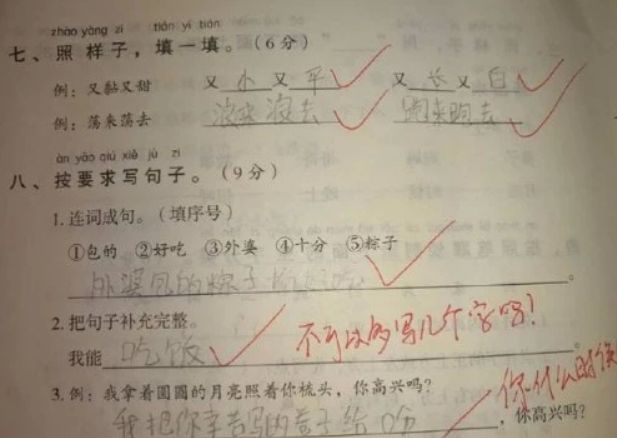 zhào yàng zi tián yi tián
七、照样子,填一填。(6分)
例：又黏又甜 又小又平 又长又白
例：荡来荡去 滚来滚去 跑来跑去
àn yāo qiú xiě jù zi
八、按要求写句子。(9分)
1.连词成句。(填序号)
①包的 ②好吃 ③外婆 ④十分 ⑤粽子
外婆包的粽子 好吃。
2.把句子补充完整。
我能吃饭。
不可以多写几个字吗!
3.例：我拿着圆圆的月亮照着你梳头,你高兴吗?
你什么时候
我把你辛苦写的 给 ,你高兴吗?